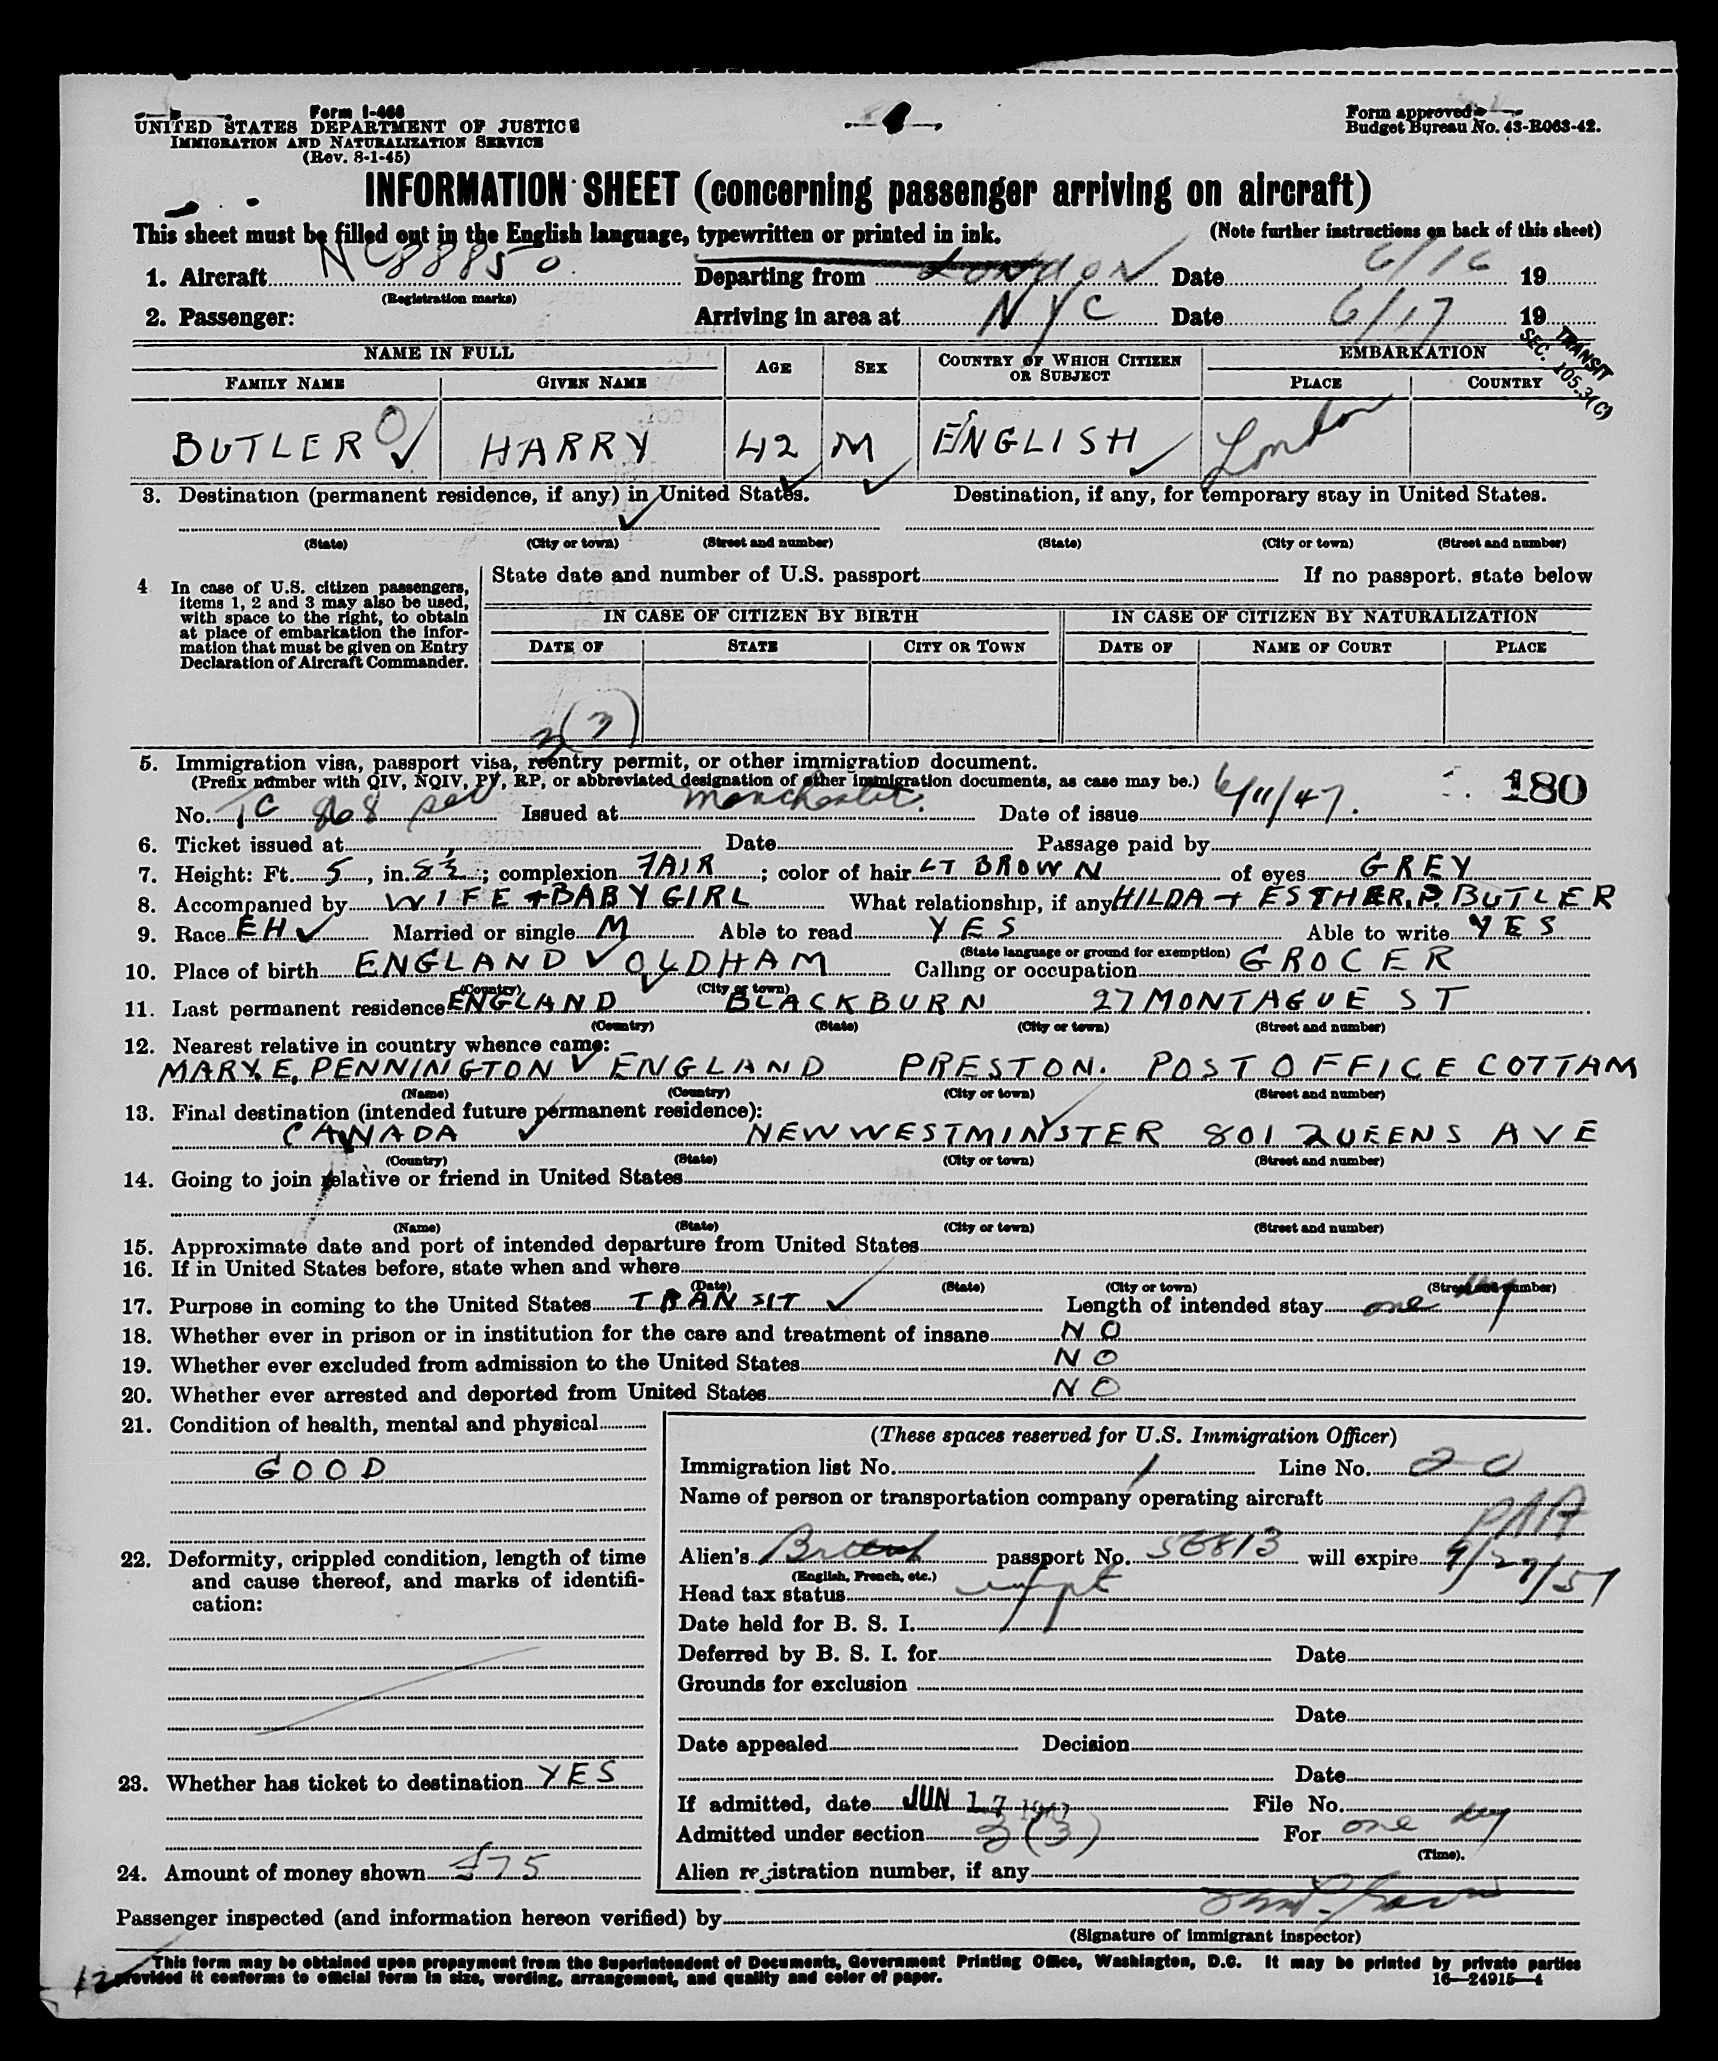 Form I-466
UNITED STATES DEPARTMENT OF JUSTICE
IMMIGRATION AND NATURALIZATION SERVICE
(Rev. 8-1-45)
Form approved
Budget Bureau No. 43-R063-42.
INFORMATION SHEET (concerning passenger arriving on aircraft)
This sheet must be filled out in the English language, typewritten or printed in ink.
(Note further instructions on back of this sheet)
1. Aircraft NC88850 Departing from London Date 6/16 19
(Registration marks)
2. Passenger: Arriving in area at NYC Date 6/17 19
TRANSIT
SEC. 105.3(C)
NAME IN FULL AGE SEX COUNTRY OF WHICH CITIZEN OR SUBJECT EMBARKATION
FAMILY NAME GIVEN NAME PLACE COUNTRY
BUTLER HARRY 42 M ENGLISH London
3. Destination (permanent residence, if any) in United States. Destination, if any, for temporary stay in United States.
(State) (City or town) (Street and number) (State) (City or town) (Street and number)
4 In case of U.S. citizen passengers, items 1, 2 and 3 may also be used, with space to the right, to obtain at place of embarkation the information that must be given on Entry Declaration of Aircraft Commander.
State date and number of U.S. passport If no passport. state below
IN CASE OF CITIZEN BY BIRTH IN CASE OF CITIZEN BY NATURALIZATION
DATE OF STATE CITY OR TOWN DATE OF NAME OF COURT PLACE
3(3)
5. Immigration visa, passport visa, reentry permit, or other immigration document.
(Prefix number with QIV, NQIV, PV, RP, or abbreviated designation of other immigration documents, as case may be.)
180
No. TC 868 Issued at Manchester Date of issue 6/11/47.
6. Ticket issued at Date Passage paid by
7. Height: Ft. 5, in. 8½; complexion FAIR; color of hair LT BROWN of eyes GREY
8. Accompanied by WIFE + BABY GIRL What relationship, if any HILDA + ESTHER. P. BUTLER
9. Race EH Married or single M Able to read YES Able to write YES
(State language or ground for exemption)
10. Place of birth ENGLAND OLDHAM Calling or occupation GROCER
(Country) (City or town)
11. Last permanent residence ENGLAND BLACKBURN 27 MONTAGUE ST
(Country) (State) (City or town) (Street and number)
12. Nearest relative in country whence came:
MARY. E. PENNINGTON ENGLAND PRESTON. POST OFFICE COTTAM
(Name) (Country) (City or town) (Street and number)
13. Final destination (intended future permanent residence):
CANADA NEW WESTMINSTER 801 QUEENS AVE
(Country) (State) (City or town) (Street and number)
14. Going to join relative or friend in United States
(Name) (State) (City or town) (Street and number)
15. Approximate date and port of intended departure from United States
16. If in United States before, state when and where
(Date) (State) (City or town) (Street and number)
17. Purpose in coming to the United States TRANSIT Length of intended stay one day
18. Whether ever in prison or in institution for the care and treatment of insane NO
19. Whether ever excluded from admission to the United States NO
20. Whether ever arrested and deported from United States NO
21. Condition of health, mental and physical
GOOD
22. Deformity, crippled condition, length of time and cause thereof, and marks of identification:
23. Whether has ticket to destination YES
24. Amount of money shown £75
(These spaces reserved for U.S. Immigration Officer)
Immigration list No. 1 Line No. 20
Name of person or transportation company operating aircraft
PAA
Alien's British passport No. S6813 will expire 5/27/57
(English, French, etc.)
Head tax status
Date held for B. S. I.
Deferred by B. S. I. for Date
Grounds for exclusion
Date
Date appealed Decision
Date
If admitted, date JUN 17 1947 File No.
Admitted under section 3(3) For one day
(Time).
Alien registration number, if any
Passenger inspected (and information hereon verified) by
(Signature of immigrant inspector)
This form may be obtained upon prepayment from the Superintendent of Documents, Government Printing Office, Washington, D.C. It may be printed by private parties
provided it conforms to official form in size, wording, arrangement, and quality and color of paper.
16—24915-4
12